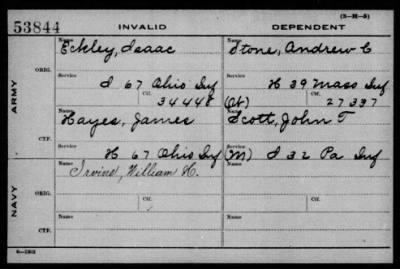 (3-M-5)
53844 INVALID DEPENDENT
ARMY
ORIG.
Name Name
Eckley, Isaac Stone, Andrew C
Service Service
I 67 Ohio Inf H 39 Mass Inf
Ctf. Ctf.
34448 27337
CTF.
Name (Ct) Name
Hayes, James Scott, John T
Service Service
H 67 Ohio Inf (M) I 32 Pa Inf
NAVY
ORIG.
Name Name
Irvine, William H.
CTF.
Name Name